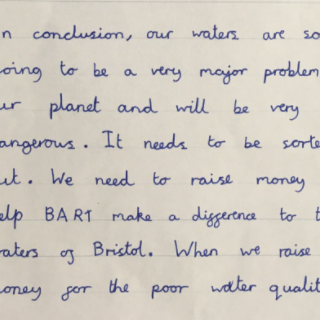 n conclusion, our waters are so
oing to be a very major problem
ur planet and will be very
angerous. It needs to be sorte
ut. We need to raise money
elp BART make a difference to t
aters of Bristol. When we raise
oney for the poor water qualit